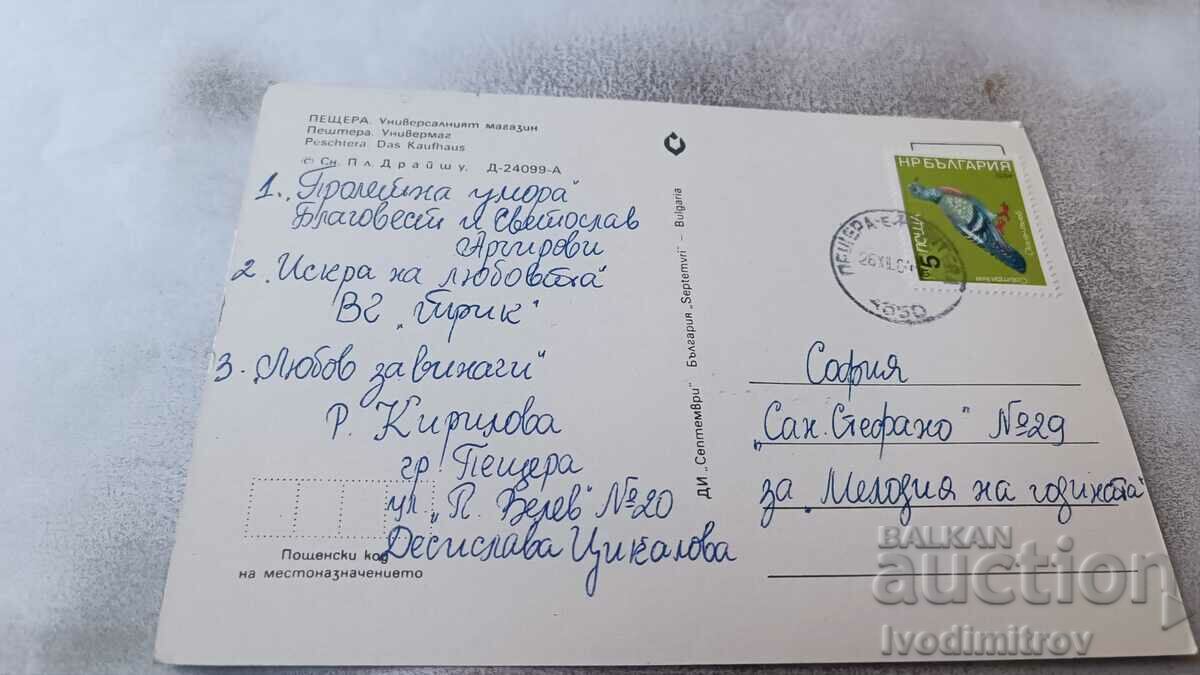 ПЕЩЕРА. Универсалният магазин
Пештера. Универмаг
Peschtera. Das Kaufhaus
© Сн. Пл. Драйшу. Д-24099-А
1. „Пролетна умора"
Благовест и Светослав
Аргирови
2. „Искра на любовта"
ВГ „Трик"
3. „Любов завинаги"
Р. Кирилова
гр. Пещера
ул. „П. Белев" №20
Десислава Цикалова
Пощенски код
на местоназначението
ДИ „Септември" България „Septemvri" – Bulgaria
НРБЪЛГАРИЯ
ПОЩА
5
ПЕЩЕРА
4550
София
„Сан. Стефано" №29
за „Мелодия на годината"
BALKAN
auction
Ivodimitrov